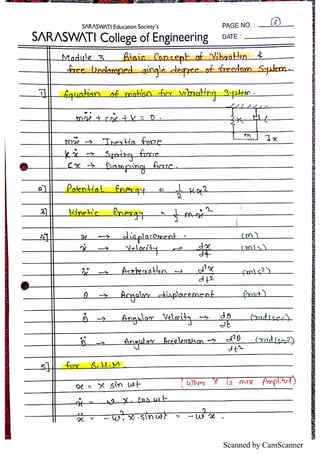 SARASWATI Education Society's
SARASWATI College of Engineering
PAGE NO. :
DATE :
Module 3 Basic Concept of Vibration &
free Undamped single degree of freedom System.
1] Equation of motion for vibrating system.
mẍ + cẋ + k = 0.
K C
m ↓x
mẍ → Inertia force
kx → Spring force
cẋ → Damping force.
2] Potential Energy = 1/2 kx²
3] Kinetic Energy = 1/2 mẋ²
4] x → displacement. (m)
ẋ → Velocity → dx/dt (m/s)
ẍ → Acceleration → d²x/dt² (m/s²)
θ → Angular displacement (rad)
θ̇ → Angular Velocity → dθ/dt (rad/sec)
θ̈ → Angular Acceleration → d²θ/dt² (rad/sec2)
5] for S.H.M
x = X sin ωt (When X is max Amplitud)
ẋ = ω. X. cos ωt
ẍ = -ω². X. sin ωt = -ω² x.
Scanned by CamScanner